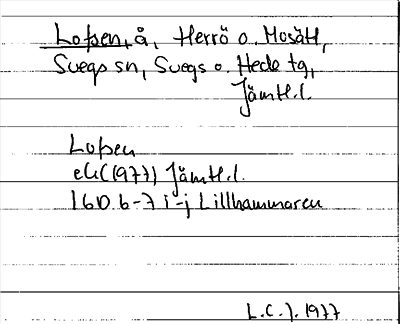 Lofsen, å, Herrö o. Mosätt,
Svegs sn, Svegs o. Hede tg,
Jämtl.l.
Lofsen
ek (1977) Jämtl.l.
16D 6-7 i-j Lillhammaren
L.C.J. 1977